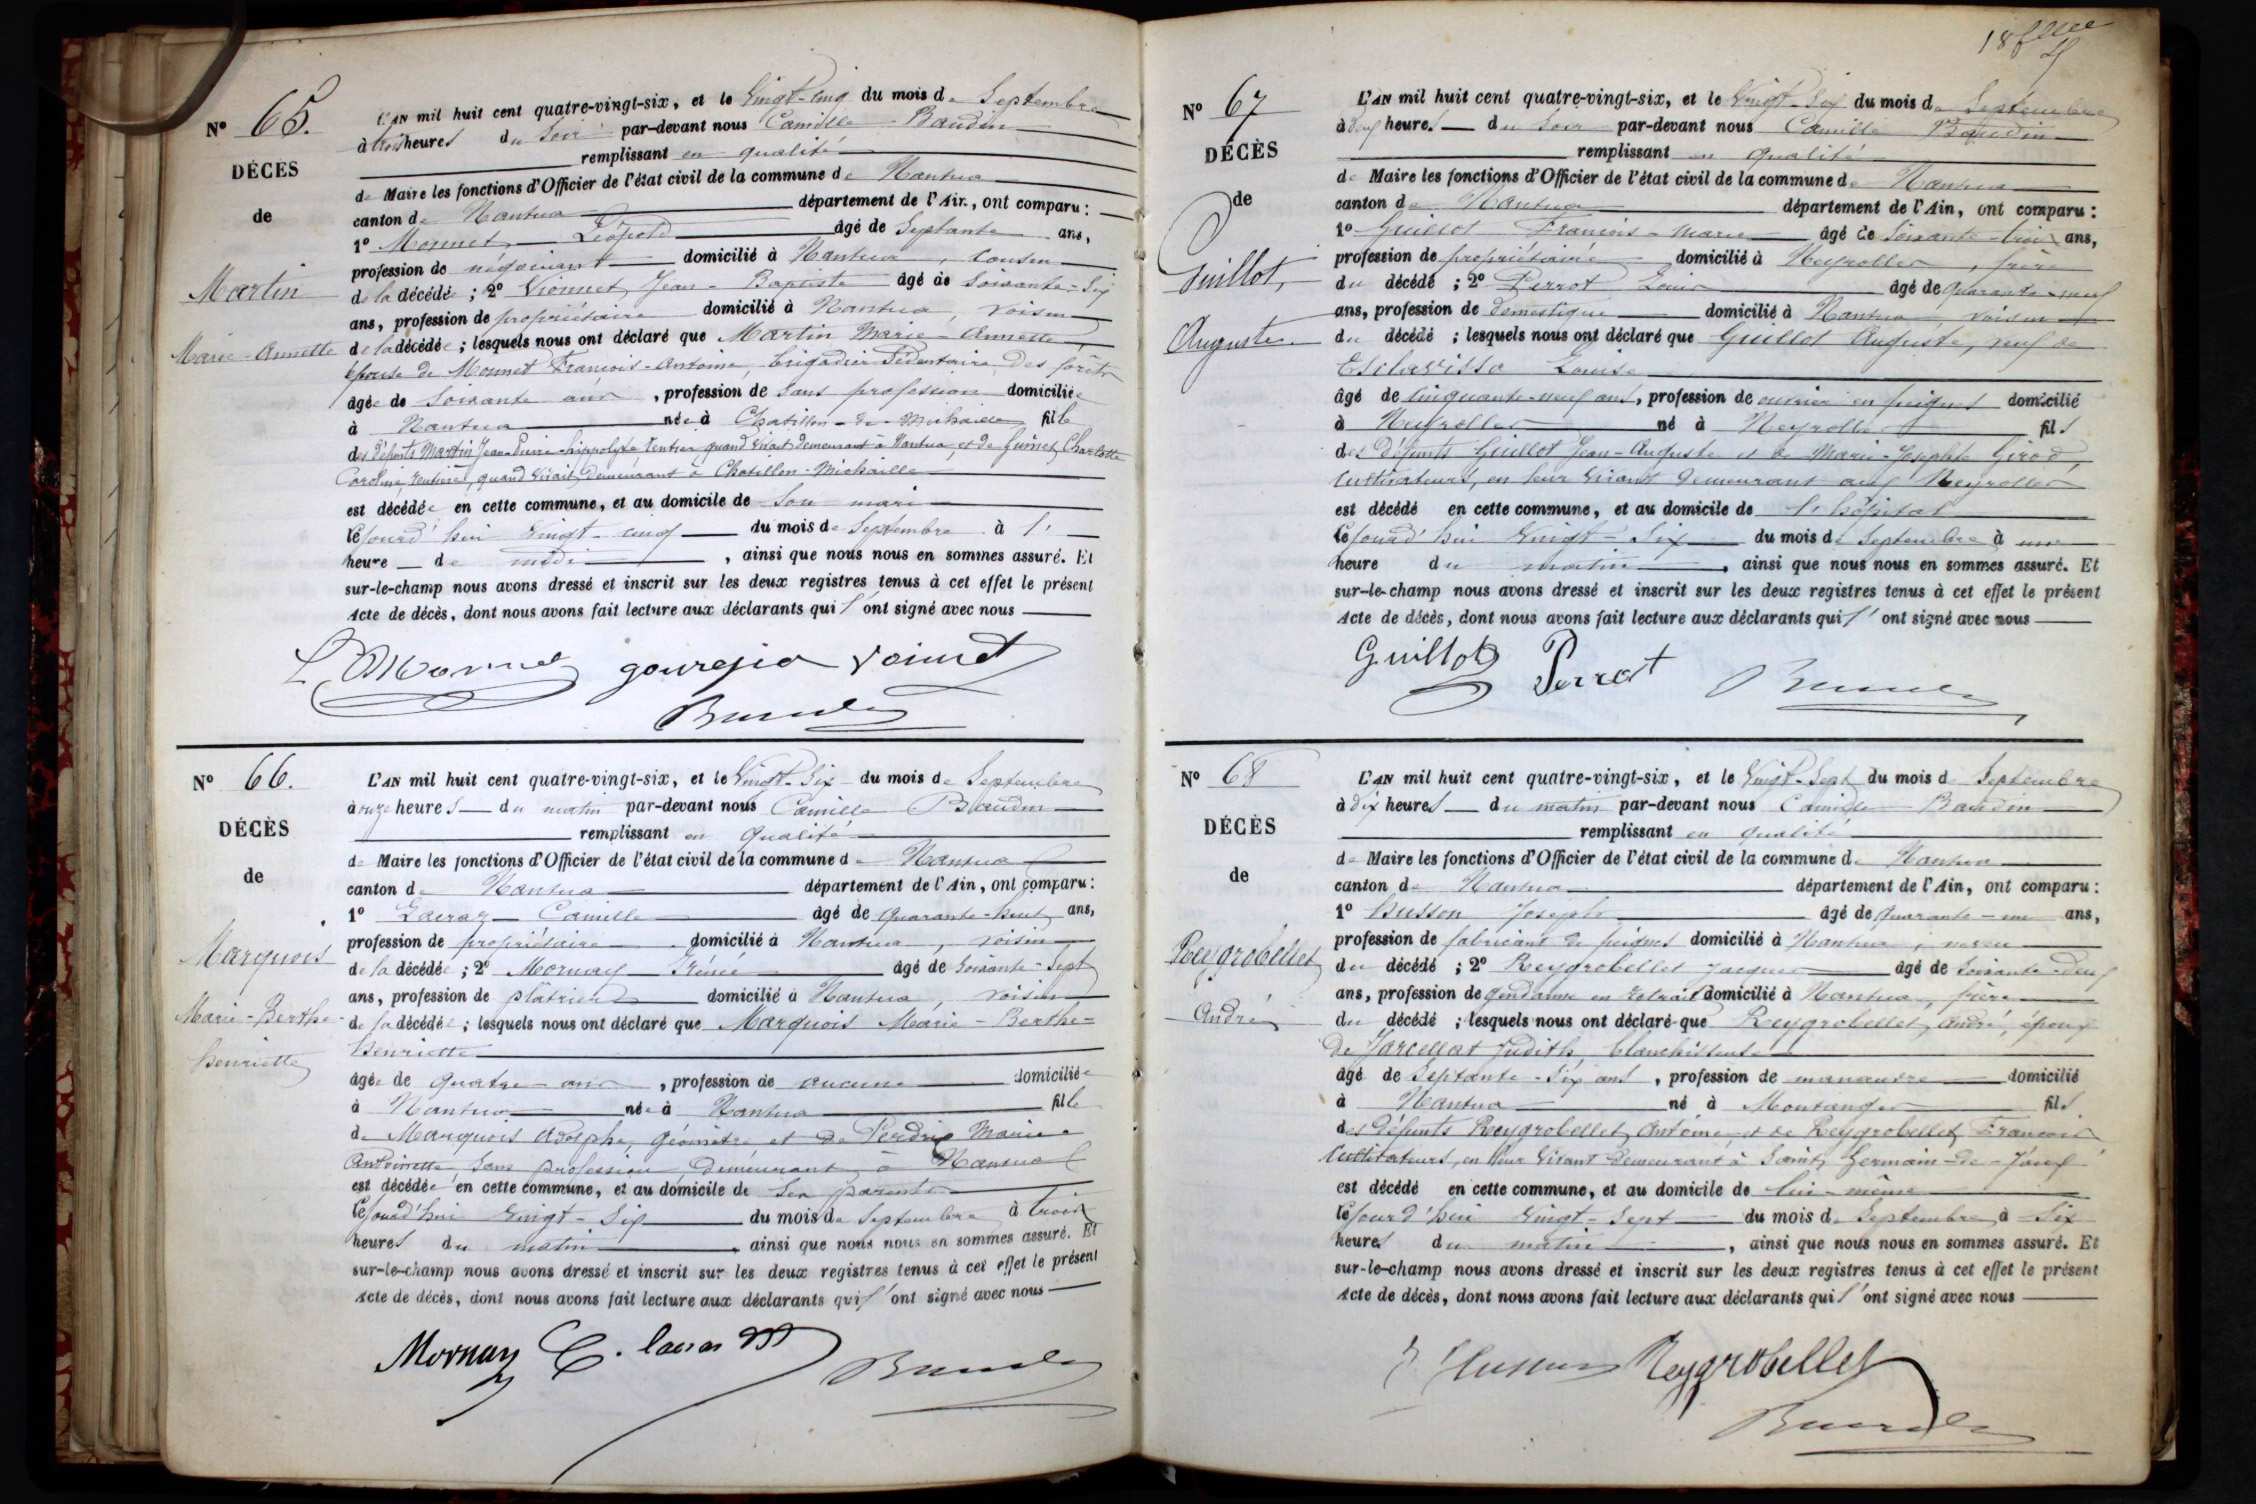 Nº 65.
DÉCÈS
de
Martin
Marie-Annette
L'AN mil huit cent quatre-vingt-six, et le Vingt-Cinq du mois de Septembre
à trois heures du Soir par-devant nous Camille Baudin
remplissant en qualité
de Maire les fonctions d'Officier de l'état civil de la commune de Nantua
canton de Nantua département de l'Ain, ont comparu :
1º Monnet Léopold âgé de Septante ans,
profession de négociant domicilié à Nantua, Cousin
de la décédée ; 2º Vionnet Jean-Baptiste âgé de Soixante-Six
ans, profession de propriétaire domicilié à Nantua, voisin
de la décédée ; lesquels nous ont déclaré que Martin Marie-Annette,
épouse de Monnet François-Antoine, brigadier Sédentaire des forêts
âgée de Soixante ans, profession de Sans profession domiciliée
à Nantua née à Chatillon-de-Michaille fille
des défunts Martin Jean-Pierre-hippolyte rentier quand vivait demeurant à Nantua, et de Guinet Charlotte
Caroline, rentière, quand vivait demeurant à Chatillon-Michaille
est décédée en cette commune, et au domicile de Son mari
cejourd'hui Vingt-cinq du mois de Septembre à 1
heure de midi, ainsi que nous nous en sommes assuré. Et
sur-le-champ nous avons dressé et inscrit sur les deux registres tenus à cet effet le présent
Acte de décès, dont nous avons fait lecture aux déclarants qui l'ont signé avec nous
Nº 66.
DÉCÈS
de
Marquois
Marie-Berthe-
henriette
L'AN mil huit cent quatre-vingt-six, et le Vingt-Six du mois de Septembre
à onze heures du matin par-devant nous Camille Baudin
remplissant en qualité
de Maire les fonctions d'Officier de l'état civil de la commune de Nantua
canton de Nantua département de l'Ain, ont comparu :
1º Lacraz Camille âgé de quarante-huit ans,
profession de propriétaire domicilié à Nantua, voisin
de la décédée ; 2º Mornay Irénée âgé de Soixante-Sept
ans, profession de plâtrier domicilié à Nantua, voisin
de la décédée ; lesquels nous ont déclaré que Marquois Marie-Berthe-
henriette
âgée de quatre ans, profession de aucune domiciliée
à Nantua née à Nantua fille
de Marquois Adolphe, géomètre et de Perdrix Marie-
Antoinette, Sans profession, demeurant à Nantua
est décédée en cette commune, et au domicile de Ses parents
cejourd'hui Vingt-Six du mois de Septembre à trois
heures du matin, ainsi que nous nous en sommes assuré. Et
sur-le-champ nous avons dressé et inscrit sur les deux registres tenus à cet effet le présent
Acte de décès, dont nous avons fait lecture aux déclarants qui l'ont signé avec nous
Mornay
Nº 67
DÉCÈS
de
Guillot,
Auguste
L'AN mil huit cent quatre-vingt-six, et le Vingt-Six du mois de Septembre
à deux heures du Soir par-devant nous Camille Baudin
remplissant en qualité
de Maire les fonctions d'Officier de l'état civil de la commune de Nantua
canton de Nantua département de l'Ain, ont comparu :
1º Guillot François-Marie âgé de Soixante-trois ans,
profession de propriétaire domicilié à Neyrolles, frère
du décédé ; 2º Perrot Louis âgé de quarante-neuf
ans, profession de domestique domicilié à Nantua voisin
du décédé ; lesquels nous ont déclaré que Guillot Auguste, veuf de
Louise
âgé de Cinquante-neuf ans, profession de ouvrier en peignes domicilié
à Neyrolles né à Neyrolles fils
des défunts Guillot Jean-Auguste et de Marie-Josephte Girod,
Cultivateurs, en leur vivant demeurant aux Neyrolles
est décédé en cette commune, et au domicile de l'hôpital
cejourd'hui Vingt-Six du mois de Septembre à une
heure du matin, ainsi que nous nous en sommes assuré. Et
sur-le-champ nous avons dressé et inscrit sur les deux registres tenus à cet effet le présent
Acte de décès, dont nous avons fait lecture aux déclarants qui l'ont signé avec nous
Guillot Perrot
Nº 68
DÉCÈS
de
Reygrobellet
André
L'AN mil huit cent quatre-vingt-six, et le Vingt-Sept du mois de Septembre
à dix heures du matin par-devant nous Camille Baudin
remplissant en qualité
de Maire les fonctions d'Officier de l'état civil de la commune de Nantua
canton de Nantua département de l'Ain, ont comparu :
1º husson Joseph âgé de quarante-un ans,
profession de fabricant de peignes domicilié à Nantua, neveu
du décédé ; 2º Reygrobellet Jacques âgé de Soixante-deux
ans, profession de gendarme en retraite domicilié à Nantua, frère
du décédé ; lesquels nous ont déclaré que Reygrobellet André, époux
de Jarcellat Judith, blanchisseuse
âgé de Septante-Six ans, profession de manœuvre domicilié
à Nantua né à Montanges fils
des défunts Reygrobellet Antoine et de Reygrobellet François
Cultivateurs, en leur vivant demeurant à Saint-Germain-de-Joux
est décédé en cette commune, et au domicile de lui-même
cejourd'hui Vingt-Sept du mois de Septembre à Six
heures du matin, ainsi que nous nous en sommes assuré. Et
sur-le-champ nous avons dressé et inscrit sur les deux registres tenus à cet effet le présent
Acte de décès, dont nous avons fait lecture aux déclarants qui l'ont signé avec nous
Reygrobellet